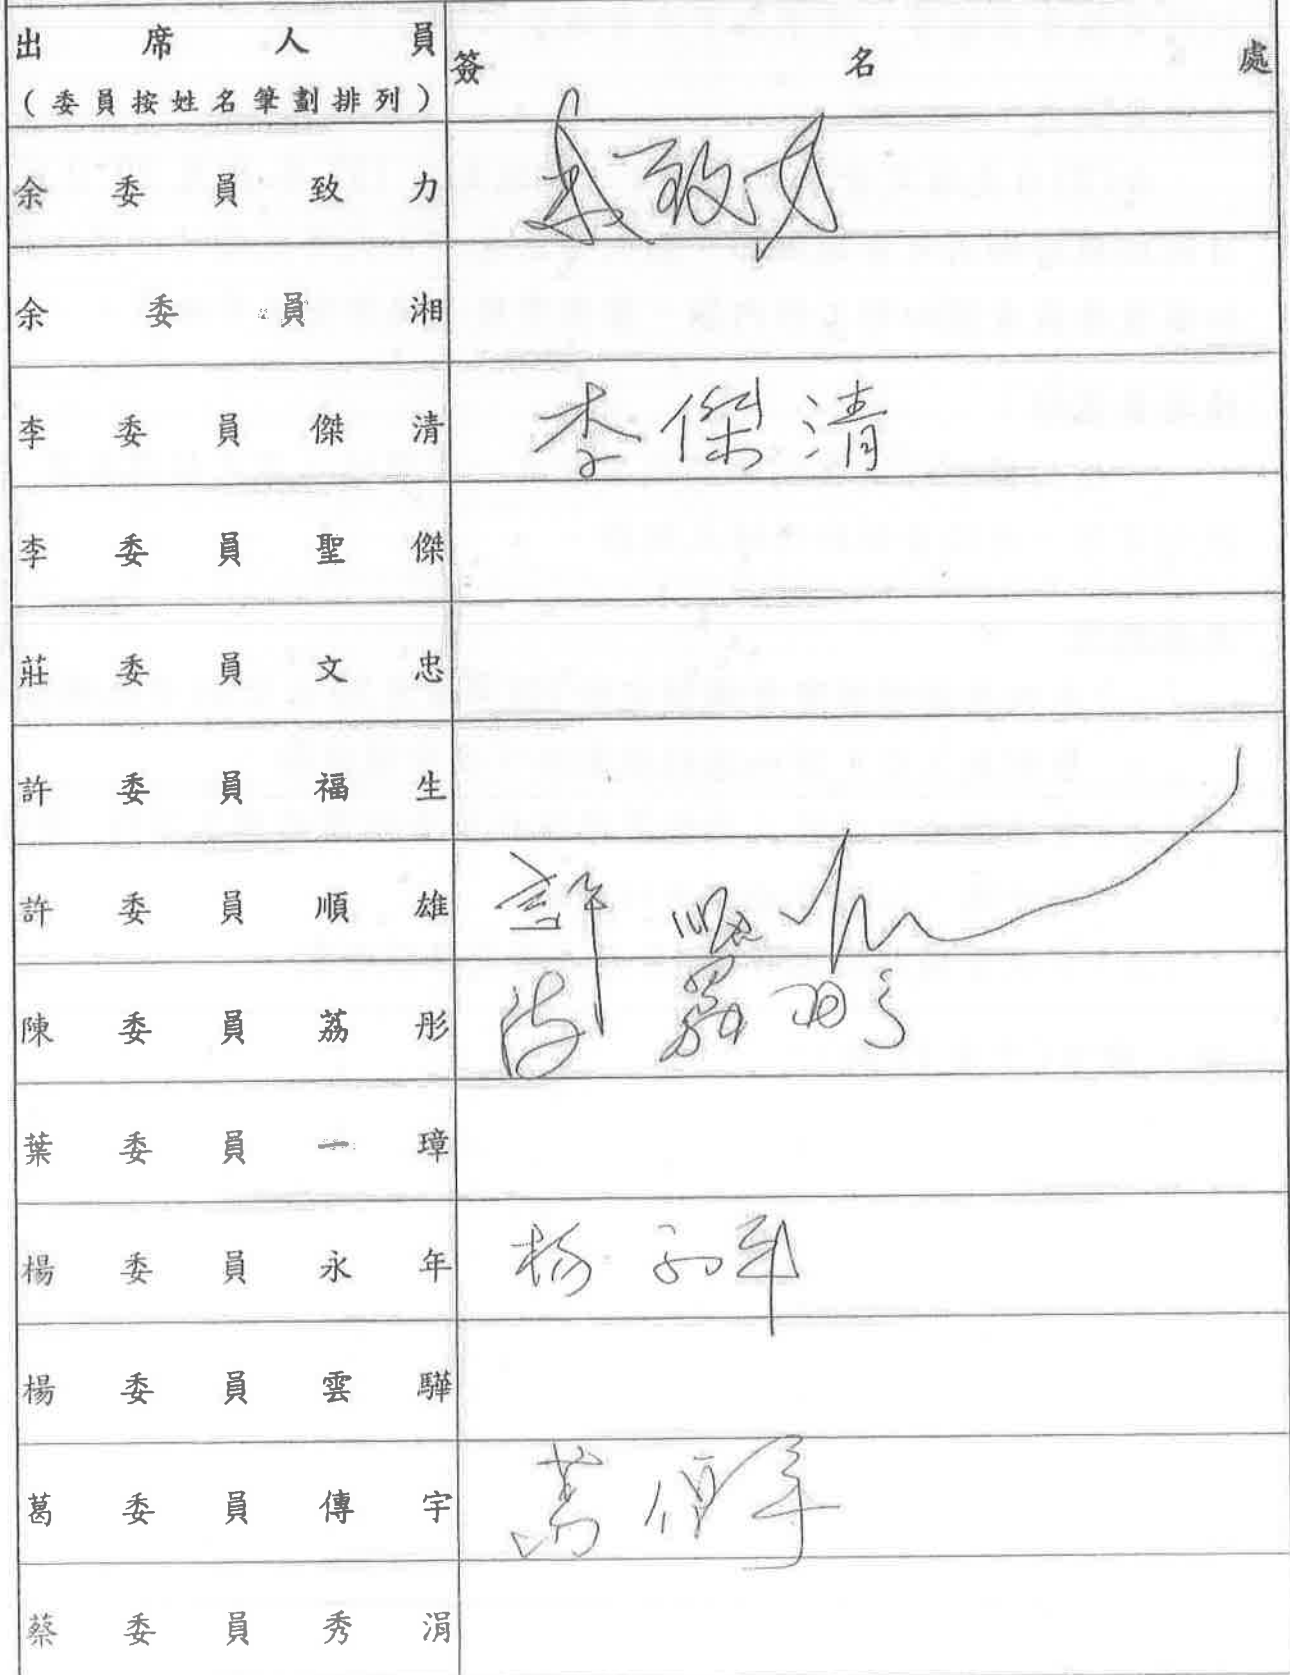 出席人員 簽名處
(委員按姓名筆劃排列)
余委員致力 余致力
余委員湘
李委員傑清 李傑清
李委員聖傑
莊委員文忠
許委員福生
許委員順雄 許順雄
陳委員荔彤 陳荔彤
葉委員一璋
楊委員永年 楊永年
楊委員雲驊
葛委員傳宇 葛傳宇
蔡委員秀涓